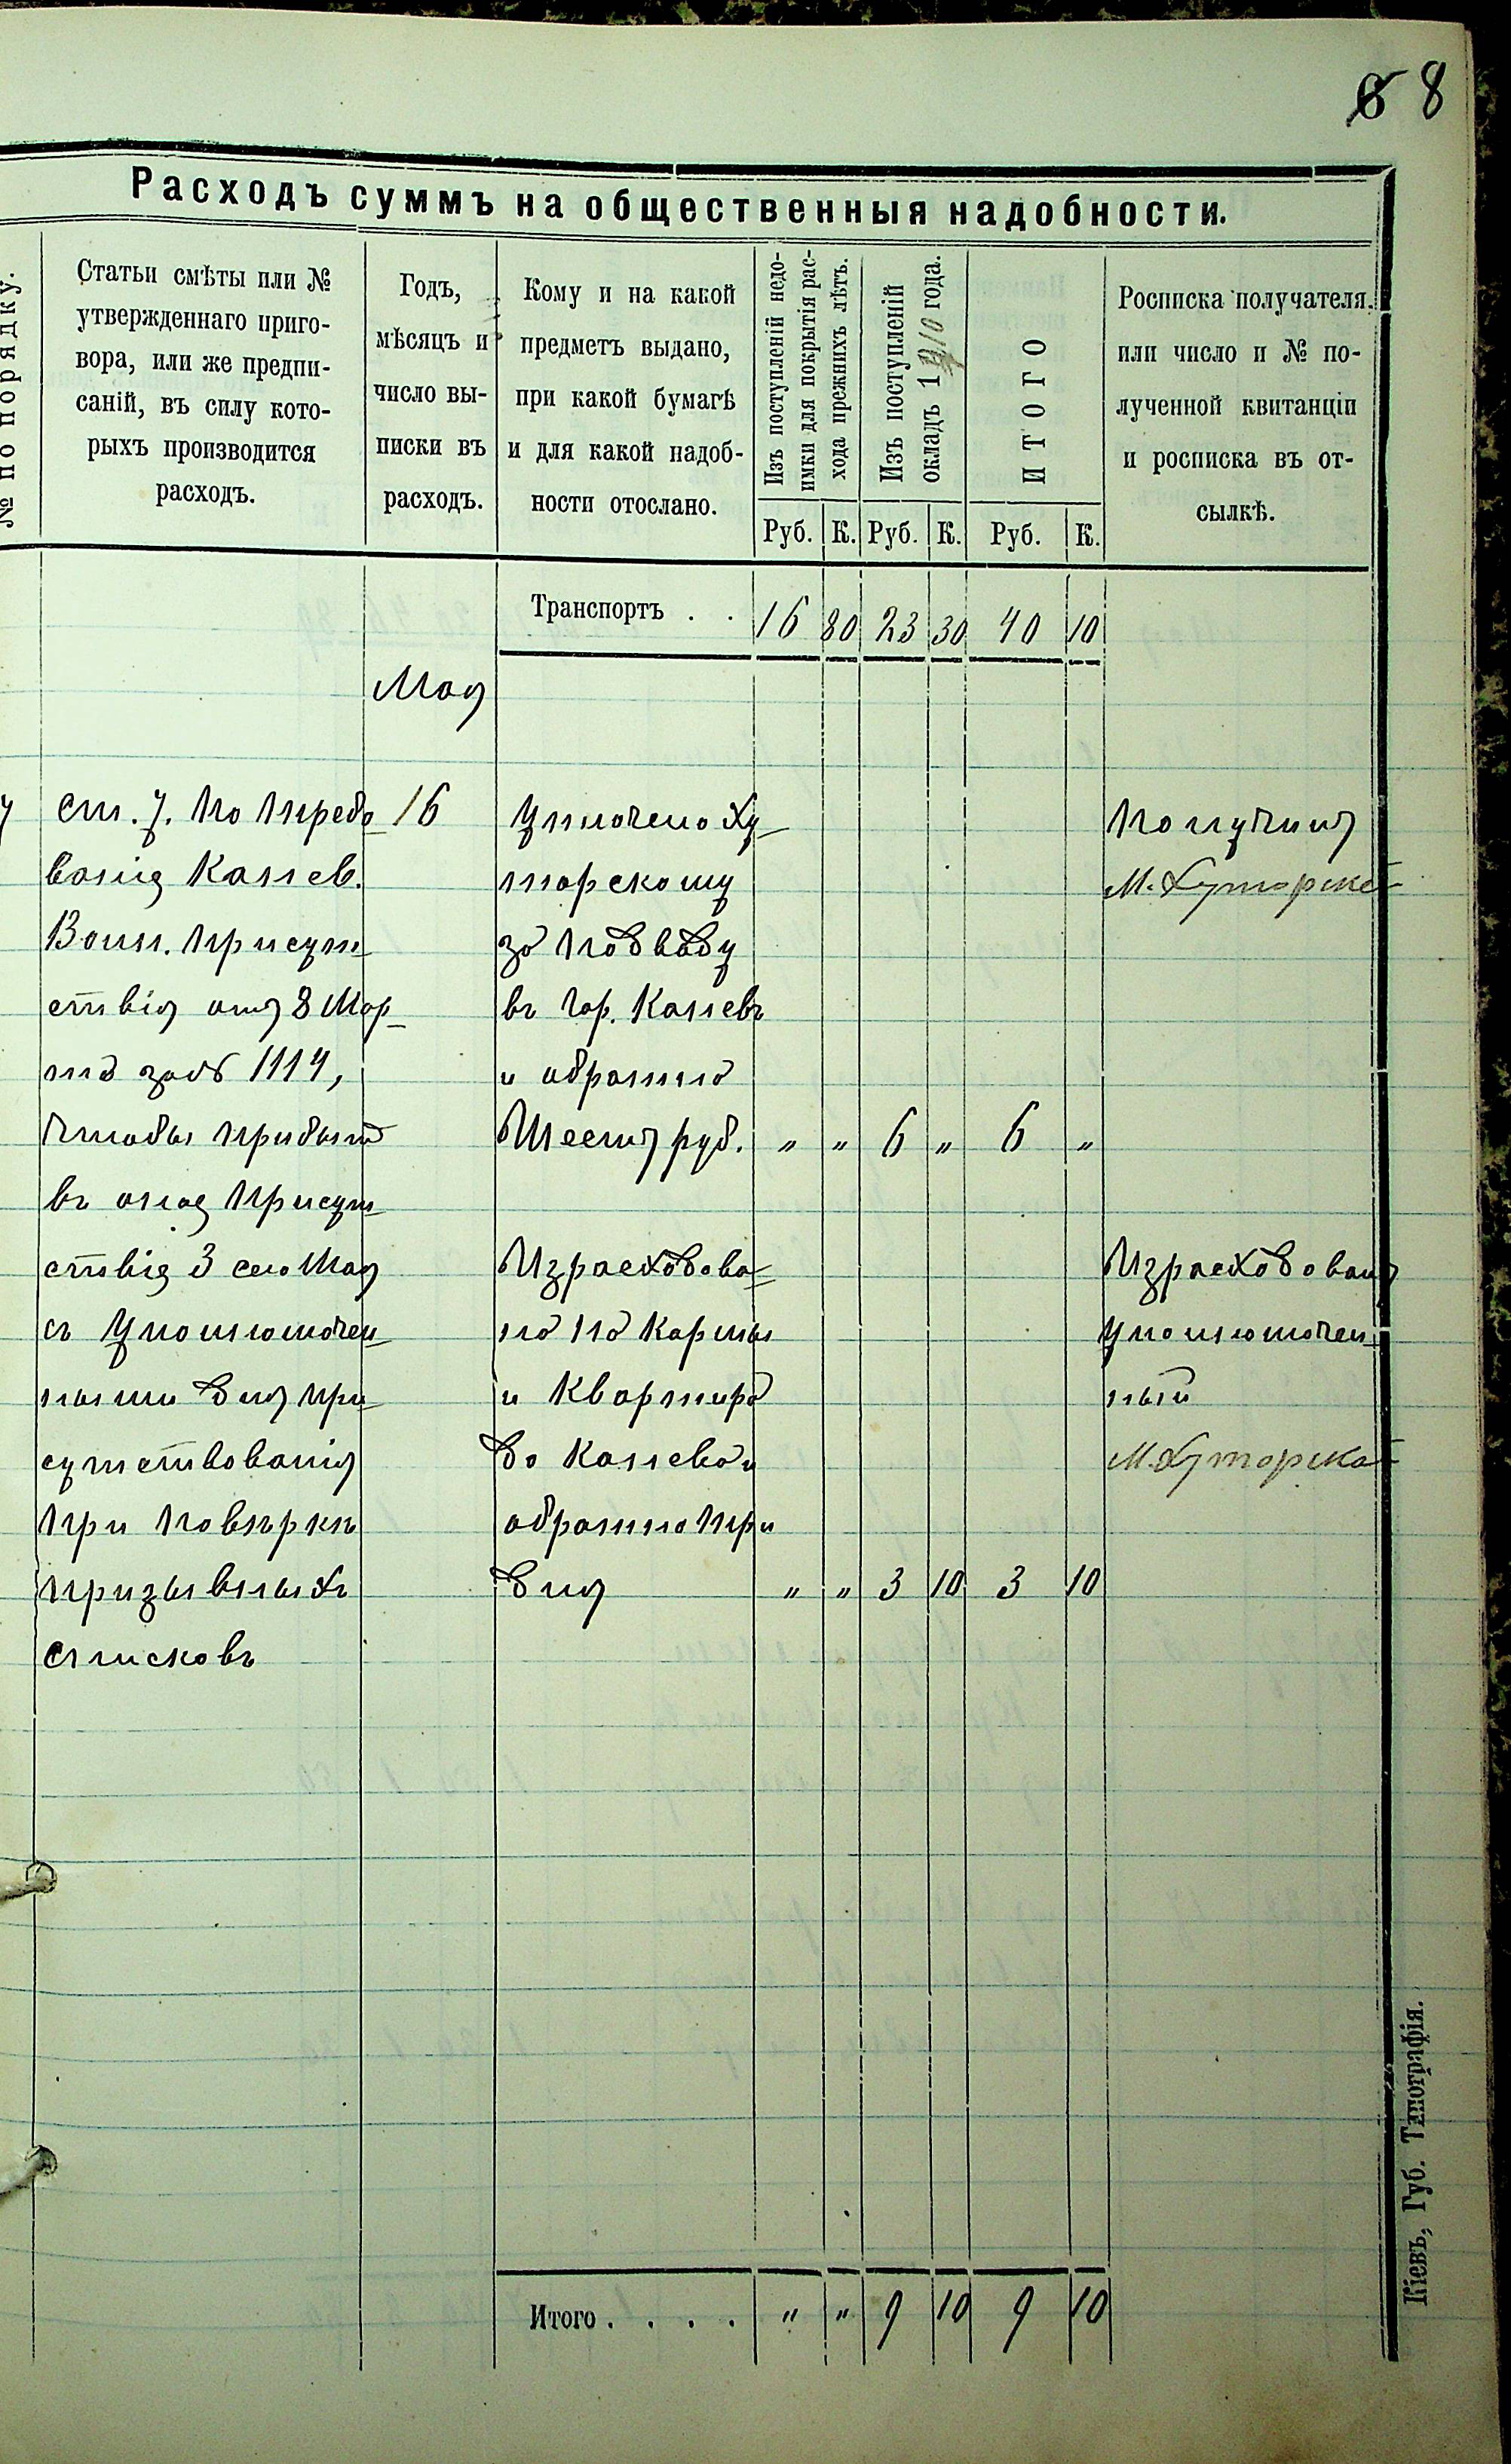 8
Расходъ суммъ на общественныя надобности.
№ по порядку.
Статьи смѣты или №
утвержденнаго приго-
вора, или же предпи-
саній, въ силу кото-
рыхъ производится
расходъ.
Годъ,
мѣсяцъ и
число вы-
писки въ
расходъ.
Кому и на какой
предметъ выдано,
при какой бумагѣ
и для какой надоб-
ности отослано.
Изъ поступленій недо-
имки для покрытія рас-
хода прежнихъ лѣтъ.
Изъ поступленій
окладъ 1910 года.
ИТОГО
Росписка получателя,
или число и № по-
лученной квитанціи
и росписка въ от-
сылкѣ.
Руб. К. Руб. К. Руб. К.
Транспортъ . . 16 80 23 30 40 10
Мая
7
ст. 7. По требо-
ванія Канев.
Воин. присут-
ствія отъ 8 Мар-
та за № 1114,
чтобы прибыть
въ оное присут-
ствіе 3 сего Мая
съ уполномочен-
ными для при-
сутствованія
при повѣркѣ
призывныхъ
списковъ
16
Уплочено Ху-
торскому
за подводу
въ гор. Каневъ
и обратно
Шесть руб. " " 6 " 6 "
Израсходова-
но на кормы
и квартира
до Канева и
обратно три
дня " " 3 10 3 10
Получилъ
М. Хуторской
Израсходовалъ
уполномочен-
ный
М. Хуторской
Итого . . . . " " 9 10 9 10
Кіевъ, Губ. Типографія.